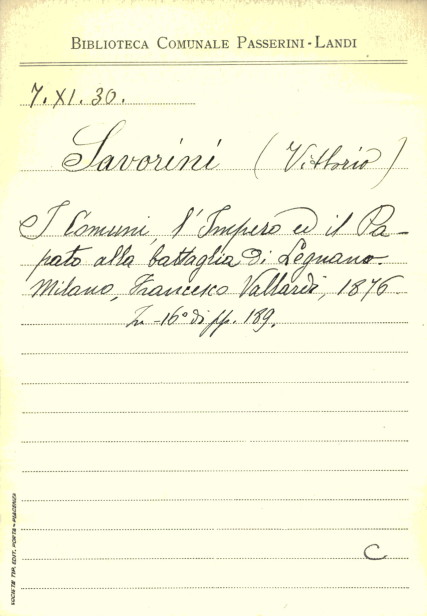 BIBLIOTECA COMUNALE PASSERINI-LANDI
7.XI.30.
Savorini (Vittorio)
I Comuni, l'Impero ed il Pa-
pato alla battaglia di Legnano
Milano, Francesco Vallardi, 1876
In-16° di pp. 189.
C
SOCIETÀ TIP. EDIT. PORTA - PIACENZA